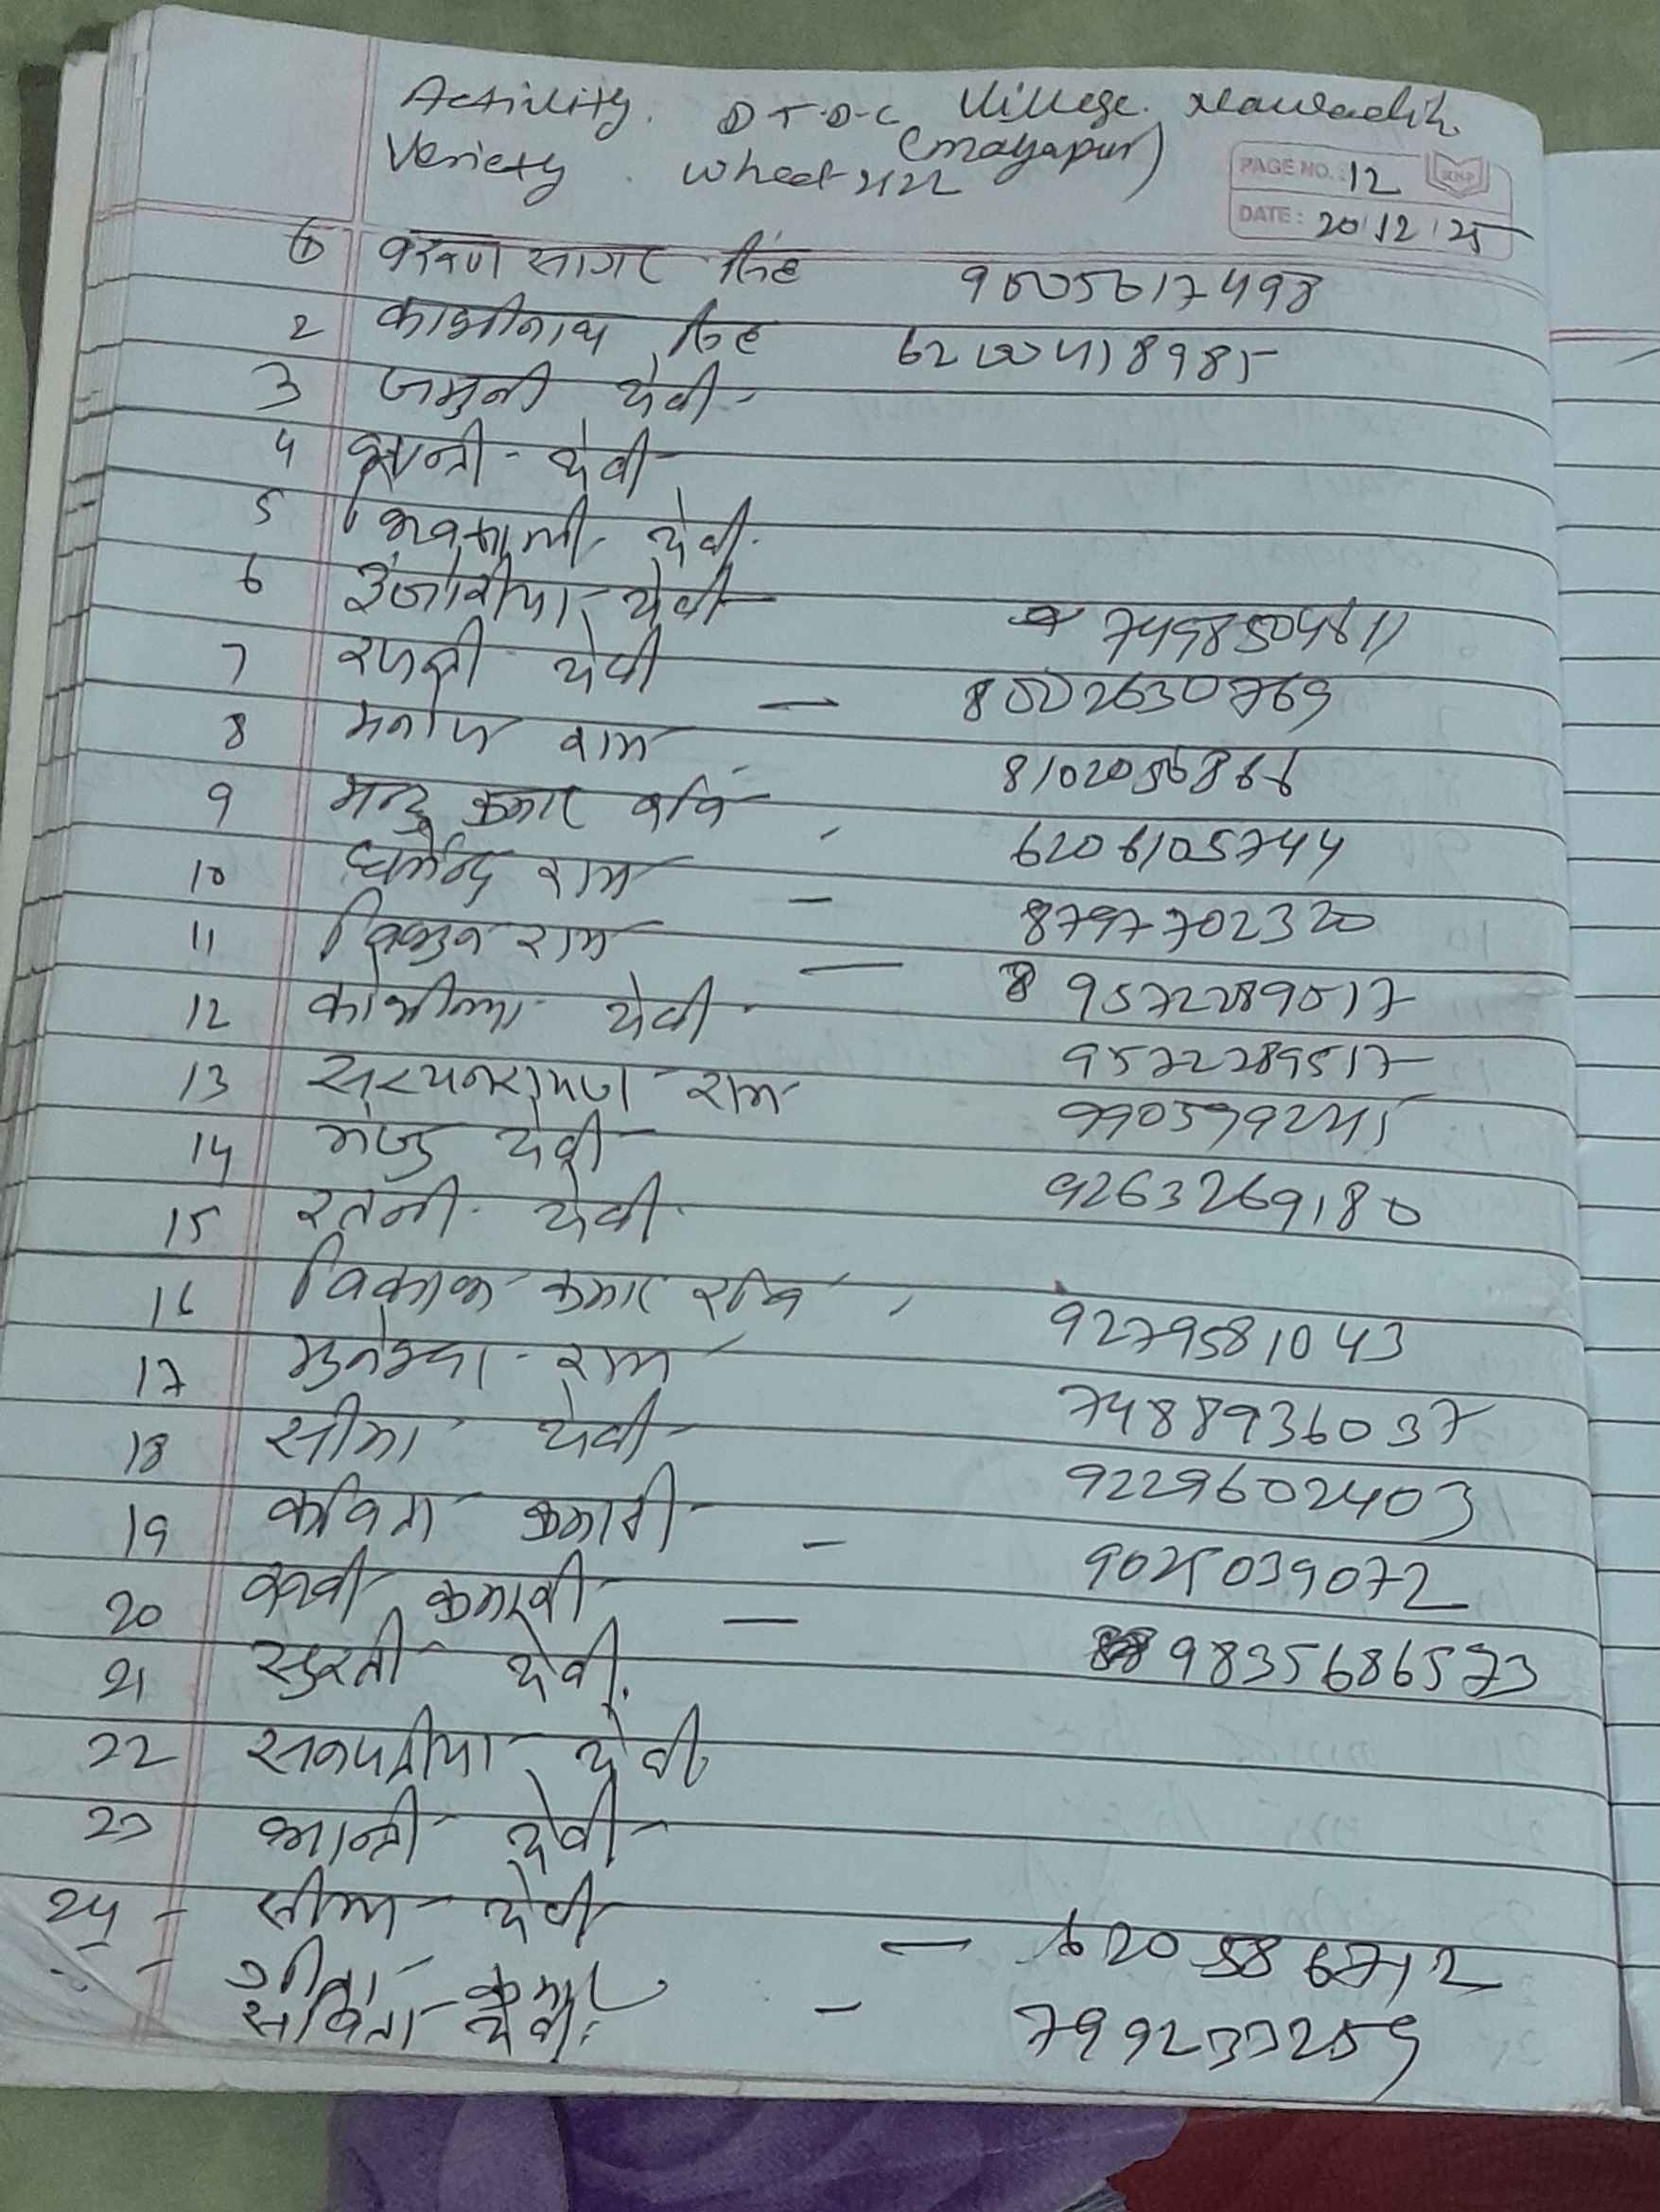 Activity. D T D C Village. Nawadih
Variety. Wheat (Mayapur)
PAGE NO.: 12
DATE: 20/12/25
1 करूण सागर सिंह
2 काशीनाथ सिंह 6200418985
3 जमुनी देवी
4 देवी
5 शिवकाली देवी
6 इंजोरीया देवी 7498504611
7 देवी — 8002630769
8 मनोज राम 8102056866
9 मन्टु कुमार रवि 6206105744
10 धर्मेन्द्र राम — 8797702320
11 राम — 9572289517
12 देवी 9572289517
13 सत्यनारायण राम
14 मंजु देवी 9263269180
15 रतनी देवी
16 विकाश कुमार रवि 9279581043
17 मुनेश्वर राम 7488936037
18 सीमा देवी 9229602403
19 कविता कुमारी — 9025039072
20 कुमारी — 9835686573
21 सुरती देवी.
22 देवी
23 शान्ती देवी
24 सीमा देवी — 620586712
गीता कुमारी
सविता देवी — 799233259